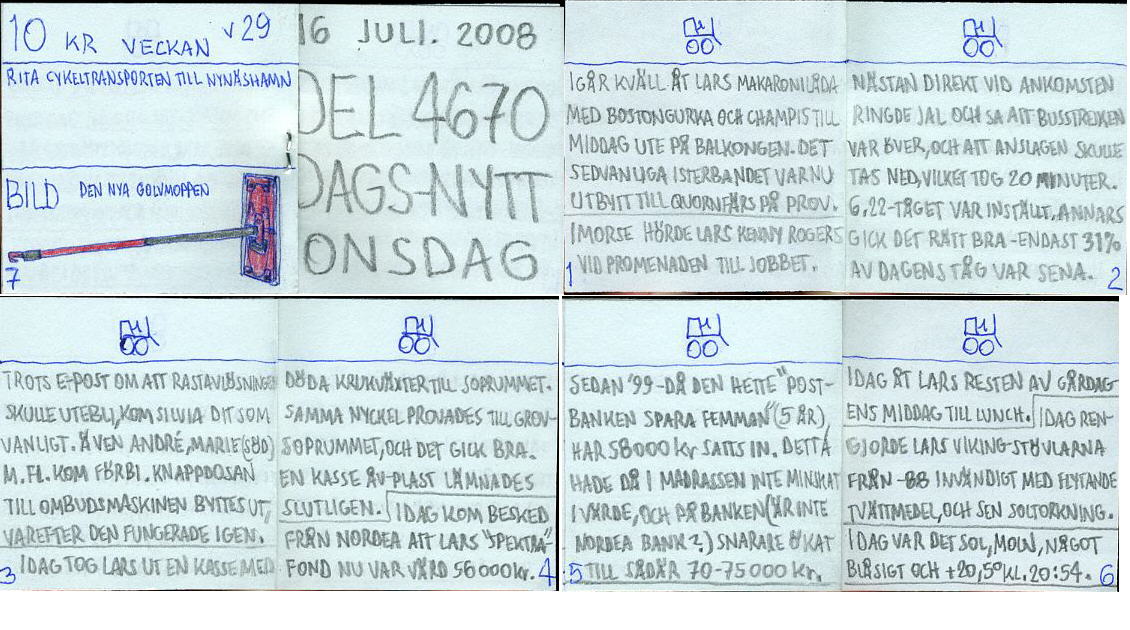 10 KR VECKAN V29
RITA CYKELTRANSPORTEN TILL NYNÄSHAMN
BILD DEN NYA GOLVMOPPEN
7
16 JULI. 2008
DEL 4670
DAGS-NYTT
ONSDAG
IGÅR KVÄLL ÅT LARS MAKARONILÅDA
MED BOSTONGURKA OCH CHAMPIS TILL
MIDDAG UTE PÅ BALKONGEN. DET
SEDVANLIGA ISTERBANDET VAR NU
UTBYTT TILL QUORNFÄRS PÅ PROV.
IMORSE HÖRDE LARS KENNY ROGERS
VID PROMENADEN TILL JOBBET.
1
NÄSTAN DIREKT VID ANKOMSTEN
RINGDE JAL OCH SA ATT BUSSTREJKEN
VAR ÖVER, OCH ATT ANSLAGEN SKULLE
TAS NED, VILKET TOG 20 MINUTER.
6,22-TÅGET VAR INSTÄLLT, ANNARS
GICK DET RÄTT BRA - ENDAST 31%
AV DAGENS TÅG VAR SENA.
2
TROTS E-POST OM ATT RASTAVLÖSNINGEN
SKULLE UTEBLI, KOM SILVIA DIT SOM
VANLIGT. ÄVEN ANDRÉ, MARIE (SÖD)
M.FL. KOM FÖRBI. KNAPPDOSAN
TILL OMBUDSMASKINEN BYTTES UT,
VAREFTER DEN FUNGERADE IGEN.
IDAG TOG LARS UT EN KASSE MED
3
DÖDA KRUKVÄXTER TILL SOPRUMMET.
SAMMA NYCKEL PROVADES TILL GROV-
SOPRUMMET, OCH DET GICK BRA.
EN KASSE ÅV-PLAST LÄMNADES
SLUTLIGEN. IDAG KOM BESKED
FRÅN NORDEA ATT LARS "SPEKTRA"-
FOND NU VAR VÄRD 56000 kr.
4
SEDAN '99 - DÅ DEN HETTE "POST-
BANKEN SPARA FEMMAN" (5 ÅR),
HAR 58000 kr SATTS IN. DETTA
HADE DÅ I MADRASSEN INTE MINSKAT
I VÄRDE, OCH PÅ BANKEN (ÄR INTE
NORDEA BANK?) SNARARE ÖKAT
TILL SÅDÄR 70-75000 kr.
5
IDAG ÅT LARS RESTEN AV GÅRDAG
ENS MIDDAG TILL LUNCH. IDAG REN-
GJORDE LARS VIKING-STÖVLARNA
FRÅN -88 INVÄNDIGT MED FLYTANDE
TVÄTTMEDEL, OCH SEN SOLTORKNING.
IDAG VAR DET SOL, MOLN, NÅGOT
BLÅSIGT OCH +20,5° KL. 20:54.
6